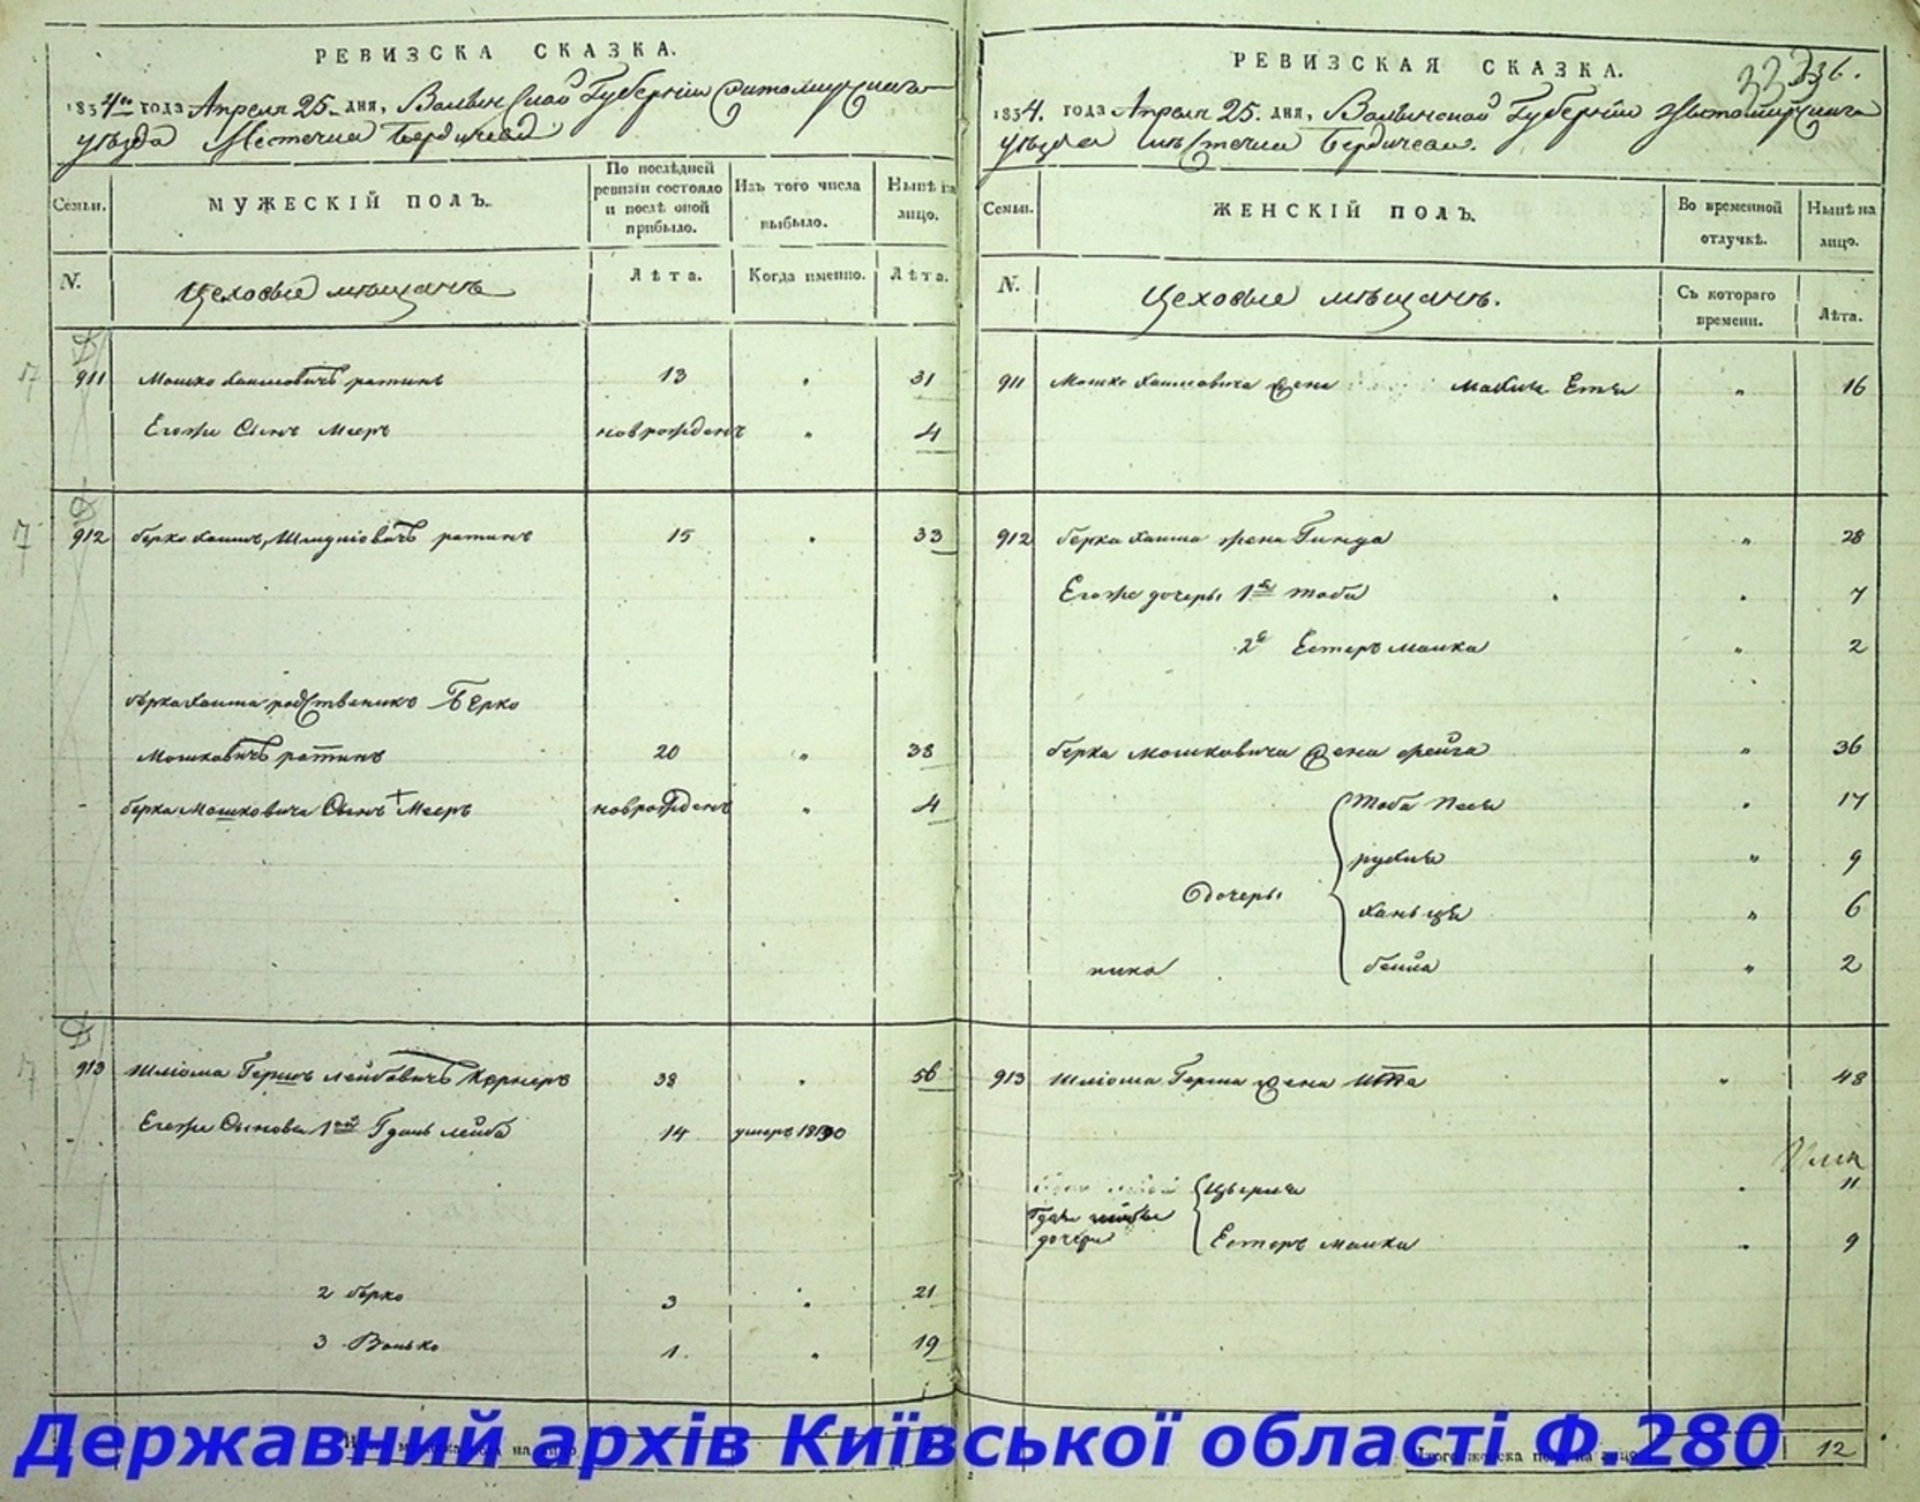 РЕВИЗСКА СКАЗКА.
1834го года Апреля 25 дня, Волынской Губернии Житомирскаго
уѣзда Местечка Бердичева
Семьи.
МУЖЕСКІЙ ПОЛЪ.
По послѣдней ревизіи состояло и послѣ оной прибыло.
Изъ того числа выбыло.
Нынѣ на лицо.
N.
Цеховые мещане
Лѣта.
Когда именно.
Лѣта.
911 Мошко Хаимовичъ ратинъ 13 " 31
Егоже Сынъ Мееръ новорожденъ " 4
912 берко Хаимъ Шмулiовичъ ратинъ 15 " 33
берка Хаима родственикъ Берко
Мошковичъ ратинъ 20 " 38
берка Мошковича Сынъ Мееръ новорожденъ " 4
913 Шліома Гершъ лейбовичъ Корнеръ 38 " 56
Егоже Сыновья 1й Гдаль лейба 14 умеръ 1830
2 берко 3 " 21
3 Волько 1 " 19
РЕВИЗСКАЯ СКАЗКА.
236.
1834. года Апреля 25. дня, Волынской Губерніи Житомирскаго
уѣзда мѣстечка Бердичева.
Семьи.
ЖЕНСКІЙ ПОЛЪ.
Во временной отлучкѣ.
Нынѣ на лицо.
N.
Цеховые мѣщане.
Съ котораго времени.
Лѣта.
911 Мошка Хаимовича жена Малка Етя " 16
912 берка Хаима жена Гинда " 28
Егоже дочеры 1я тоба " 7
2я Естеръ малка " 2
берка Мошковича жена фейга " 36
дочеры
тоба песя " 17
рухля " 9
Ханьця " 6
бейла " 2
913 Шліома Герша жена 48
дочери
11
Естеръ малка " 9
Итого женска пола на лицо 12
Державний архів Київської області Ф.280